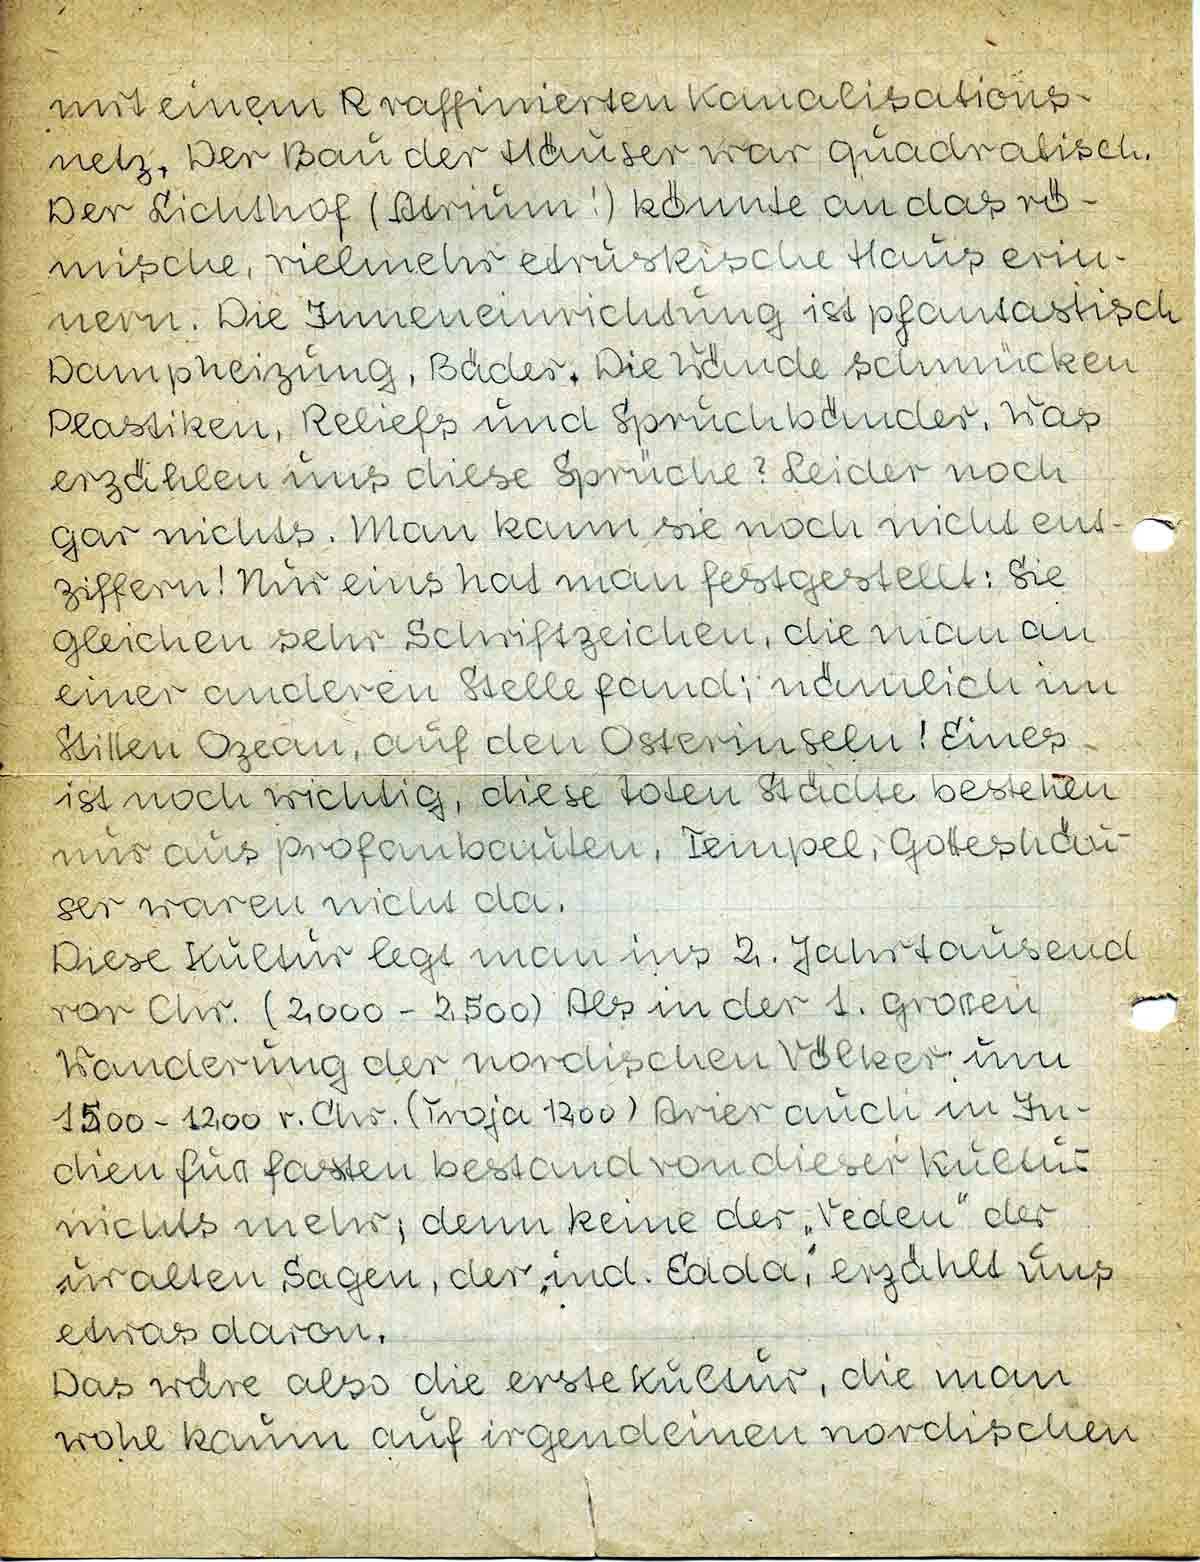 mit einem R raffinierten Kanalisations-
netz. Der Bau der Häuser war quadratisch.
Der Lichthof (Atrium!) könnte an das rö-
mische, vielmehr etruskische Haus erin-
nern. Die Inneneinrichtung ist phantastisch
Dampheizung, Bäder. Die Wände schmücken
Plastiken, Reliefs und Spruchbänder. Was
erzählen uns diese Sprüche? Leider noch
gar nichts. Man kann sie noch nicht ent-
ziffern! Nur eins hat man festgestellt: Sie
gleichen sehr Schriftzeichen, die man an
einer anderen Stelle fand; nämlich im
Stillen Ozean, auf den Osterinseln! Eines
ist noch wichtig, diese toten Städte bestehen
nur aus Profanbauten, Tempel, Gotteshäu-
ser waren nicht da.
Diese Kultur legt man ins 2. Jahrtausend
vor Chr. (2000 - 2500) Als in der 1. großen
Wanderung der nordischen Völker um
1500 - 1200 v. Chr. (Troja 1200) Arier auch in In-
dien fuß fassten bestand von dieser Kultur
nichts mehr; denn keine der „Veden" der
uralten Sagen, der „ind. Edda", erzählt uns
etwas davon.
Das wäre also die erste Kultur, die man
wohl kaum auf irgendeinen nordischen